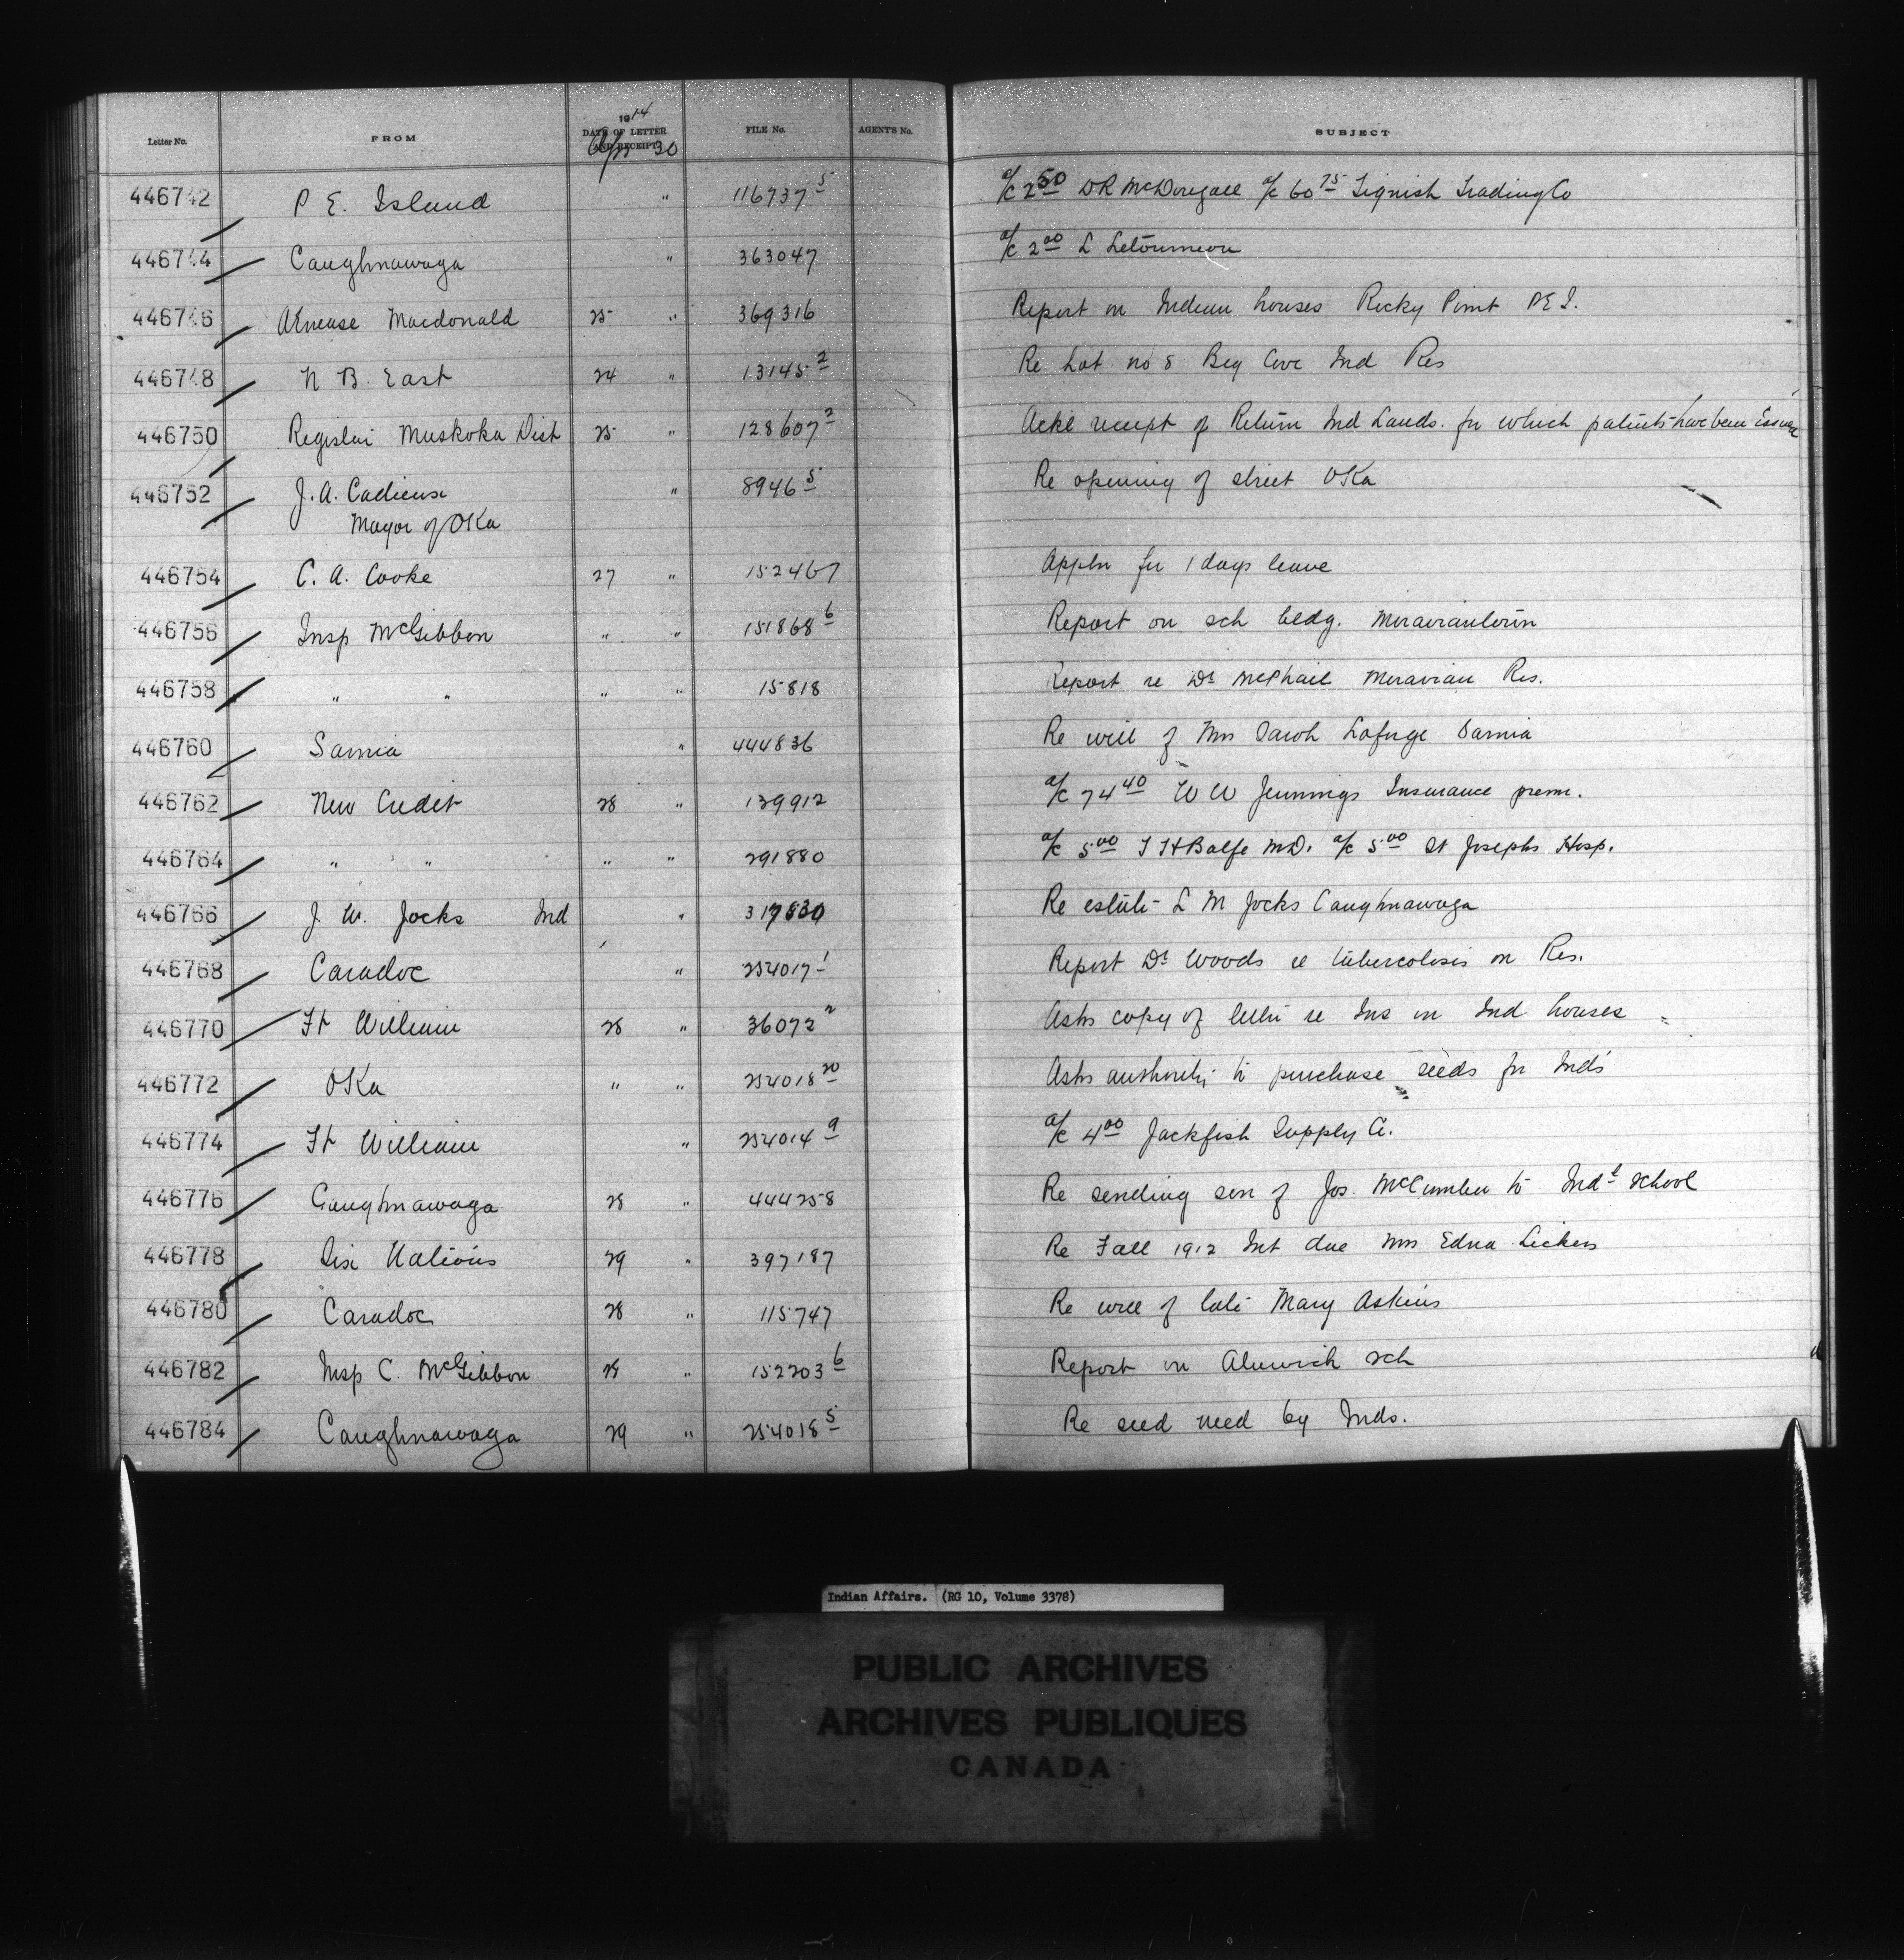 Letter No. FROM 1914 DATE OF LETTER AND RECEIPT FILE No. AGENT'S No. SUBJECT
Apr 30
446742 P E. Island " 116737 5 a/c 2 50 DR McDougall a/c 60 75 Tignish Trading Co
446744 Caughnawaga " 363047 a/c 2 00 L Letourneau
446746 Macdonald 25 " 369316 Report on Indian houses Rocky Point P E I.
446748 N B. East 24 " 13145 2 Re Lot no 8 Big Cove Ind Res
446750 Registrar Muskoka Dist 25 " 128607 2 Ackg receipt of Return Ind Lands. for which patents have been Issued
446752 J. A. Cadieux " 8946 5 Re opening of street OKa
Mayor of OKa
446754 C. A. Cooke 27 " 152467 Appln for 1 days leave
446756 Insp McGibbon " " 151868 6 Report on sch bldg. Moraviantown
446758 " " " " 15818 Report re Dr McPhail Moravian Res.
446760 Sarnia " 444836 Re will of Mrs Sarah Laforge Sarnia
446762 New Credit 28 " 139912 a/c 74 40 W W Jennings Insurance prem.
446764 " " " " 291880 a/c 5 00 T H Balfe M.D. a/c 5 00 St Josephs Hosp.
446766 J. W. Jocks Ind " 317830 Re estate L M Jocks Caughnawaga
446768 Caradoc " 254017 1 Report Dr Woods re tubercolosis on Res.
446770 Ft William 28 " 36072 2 Asks copy of letter re Ins on Ind houses
446772 OKa " " 254018 20 Asks authority to purchase seeds for Inds
446774 Ft William " 254014 9 a/c 4 00 Jackfish Supply Co.
446776 Caughnawaga 28 " 444258 Re sending son of Jos. McCumber to Indl School
446778 Six Nations 29 " 397187 Re Fall 1912 Int due Mrs Edna Lickers
446780 Caradoc 28 " 115747 Re will of late Mary Askins
446782 Insp C. McGibbon 28 " 152203 6 Report on Alnwick sch
446784 Caughnawaga 29 " 254018 5 Re seed need by Inds.
Indian Affairs. (RG 10, Volume 3378)
PUBLIC ARCHIVES
ARCHIVES PUBLIQUES
CANADA